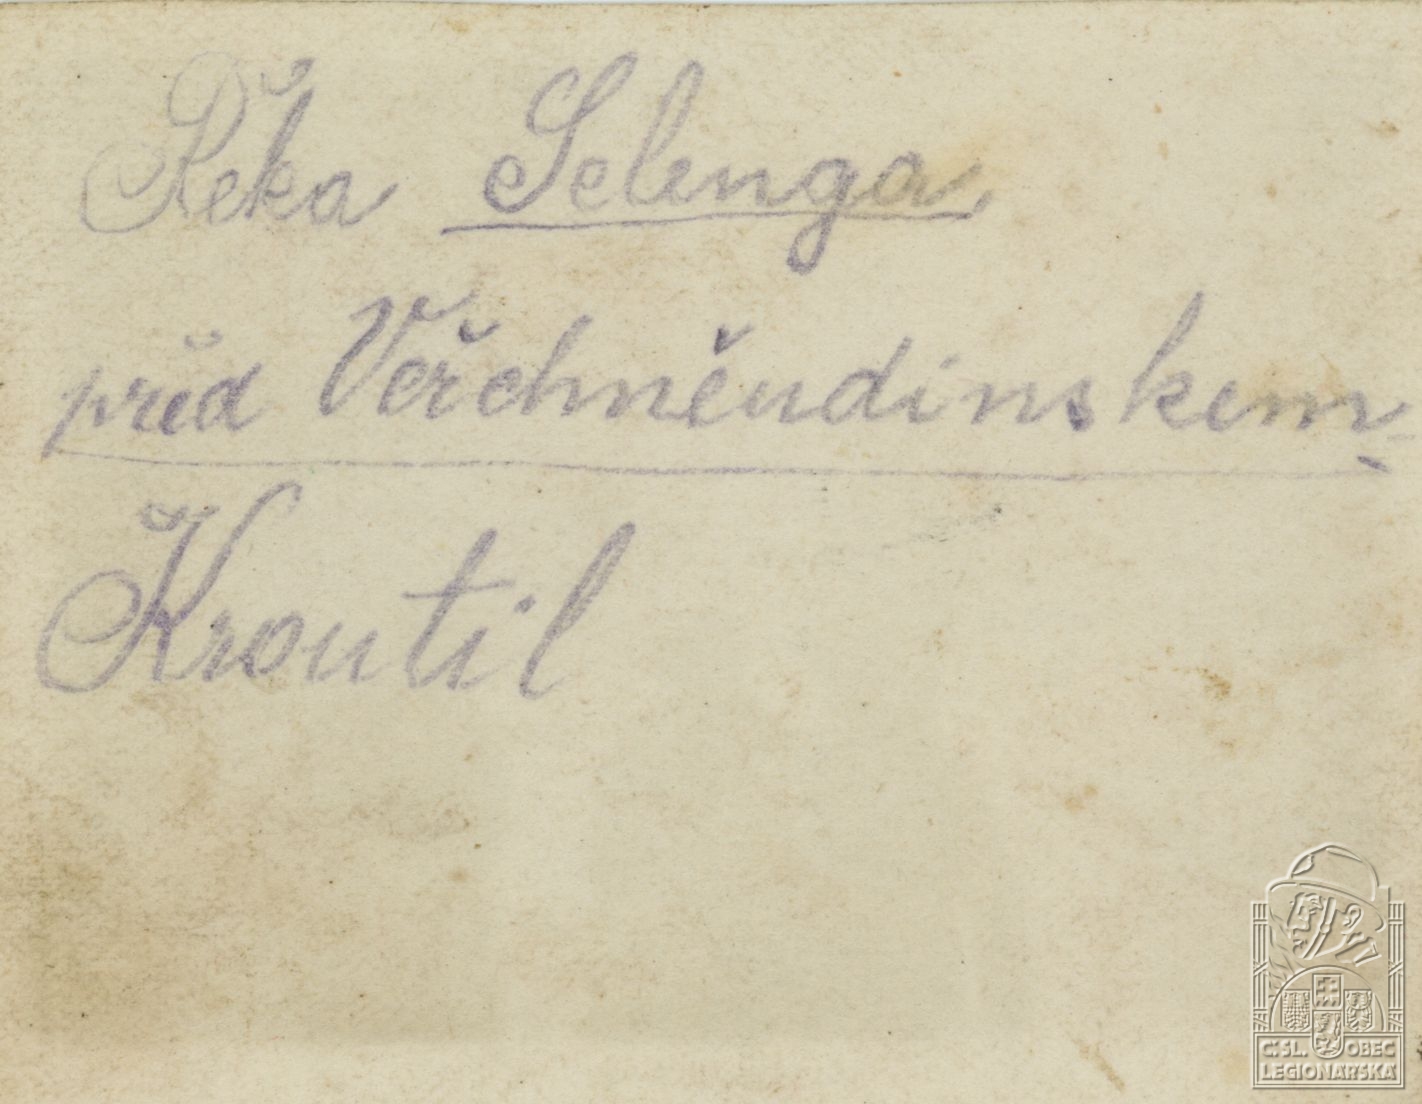 Řeka Selenga
před Veřchněudinskem.
Kroutil
Č.SL. OBEC
LEGIONÁŘSKÁ